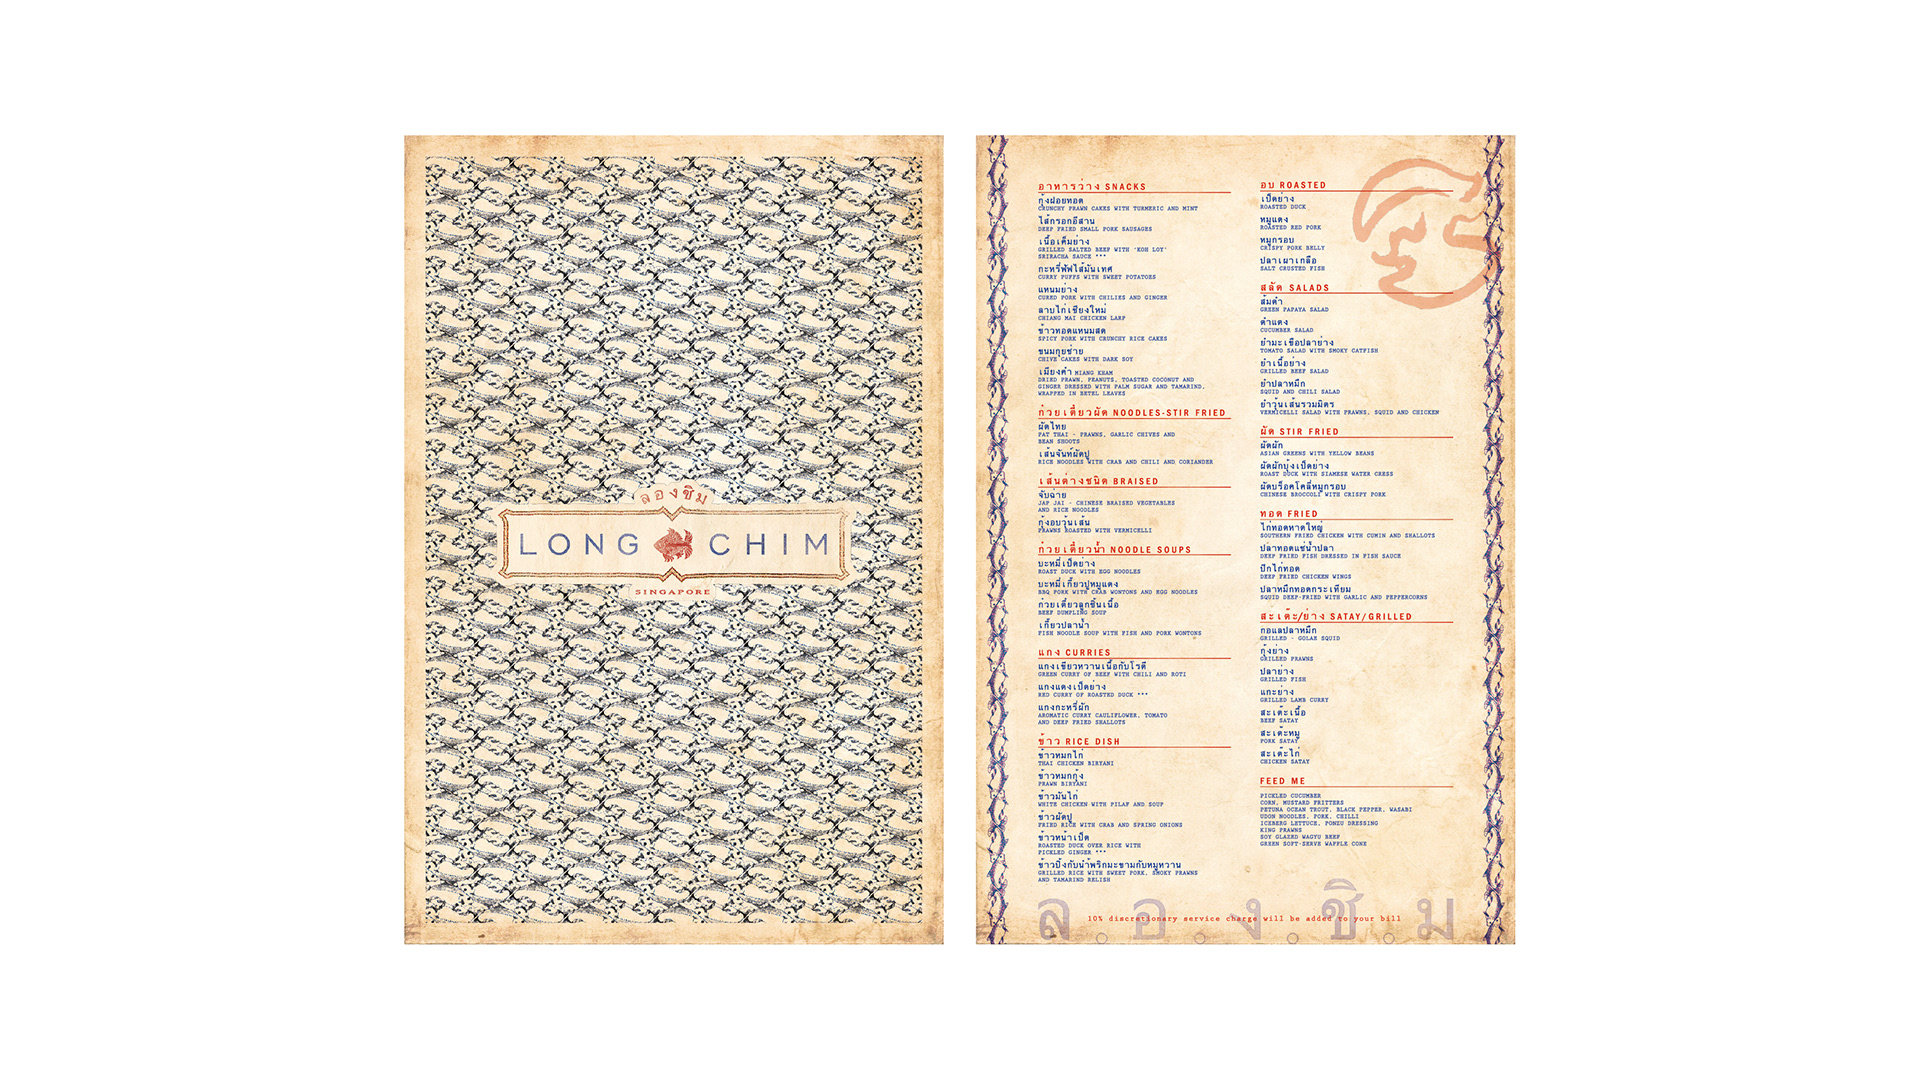 ลองชิม
LONG CHIM
SINGAPORE
อาหารว่าง SNACKS
กุ้งฝอยทอด
CRUNCHY PRAWN CAKES WITH TURMERIC AND MINT
ไส้กรอกอีสาน
DEEP FRIED SMALL PORK SAUSAGES
เนื้อเค็มย่าง
GRILLED SALTED BEEF WITH 'KOH LOY'
SRIRACHA SAUCE ***
กะหรี่พัฟไส้มันเทศ
CURRY PUFFS WITH SWEET POTATOES
แหนมย่าง
CURED PORK WITH CHILIES AND GINGER
ลาบไก่เชียงใหม่
CHIANG MAI CHICKEN LARP
ข้าวทอดแหนมสด
SPICY PORK WITH CRUNCHY RICE CAKES
ขนมกุยช่าย
CHIVE CAKES WITH DARK SOY
เมี่ยงคำ MIANG KHAM
DRIED PRAWN, PEANUTS, TOASTED COCONUT AND
GINGER DRESSED WITH PALM SUGAR AND TAMARIND,
WRAPPED IN BETEL LEAVES
ก๋วยเตี๋ยวผัด NOODLES-STIR FRIED
ผัดไทย
PAT THAI - PRAWNS, GARLIC CHIVES AND
BEAN SHOOTS
เส้นจันท์ผัดปู
RICE NOODLES WITH CRAB AND CHILI AND CORIANDER
เส้นต่างชนิด BRAISED
จับฉ่าย
JAP JAI - CHINESE BRAISED VEGETABLES
AND RICE NOODLES
กุ้งอบวุ้นเส้น
PRAWNS ROASTED WITH VERMICELLI
ก๋วยเตี๋ยวน้ำ NOODLE SOUPS
บะหมี่เป็ดย่าง
ROAST DUCK WITH EGG NOODLES
บะหมี่เกี๊ยวปูหมูแดง
BBQ PORK WITH CRAB WONTONS AND EGG NOODLES
ก๋วยเตี๋ยวลูกชิ้นเนื้อ
BEEF DUMPLING SOUP
เกี๊ยวปลาน้ำ
FISH NOODLE SOUP WITH FISH AND PORK WONTONS
แกง CURRIES
แกงเขียวหวานเนื้อกับโรตี
GREEN CURRY OF BEEF WITH CHILI AND ROTI
แกงแดงเป็ดย่าง
RED CURRY OF ROASTED DUCK ***
แกงกะหรี่ผัก
AROMATIC CURRY CAULIFLOWER, TOMATO
AND DEEP FRIED SHALLOTS
ข้าว RICE DISH
ข้าวหมกไก่
THAI CHICKEN BIRYANI
ข้าวหมกกุ้ง
PRAWN BIRYANI
ข้าวมันไก่
WHITE CHICKEN WITH PILAF AND SOUP
ข้าวผัดปู
FRIED RICE WITH CRAB AND SPRING ONIONS
ข้าวหน้าเป็ด
ROASTED DUCK OVER RICE WITH
PICKLED GINGER ***
ข้าวปิ้งกับน้ำพริกมะขามกับหมูหวาน
GRILLED RICE WITH SWEET PORK, SMOKY PRAWNS
AND TAMARIND RELISH
อบ ROASTED
เป็ดย่าง
ROASTED DUCK
หมูแดง
ROASTED RED PORK
หมูกรอบ
CRISPY PORK BELLY
ปลาเผาเกลือ
SALT CRUSTED FISH
สลัด SALADS
ส้มตำ
GREEN PAPAYA SALAD
ตำแตง
CUCUMBER SALAD
ยำมะเขือปลาย่าง
TOMATO SALAD WITH SMOKY CATFISH
ยำเนื้อย่าง
GRILLED BEEF SALAD
ยำปลาหมึก
SQUID AND CHILI SALAD
ยำวุ้นเส้นรวมมิตร
VERMICELLI SALAD WITH PRAWNS, SQUID AND CHICKEN
ผัด STIR FRIED
ผัดผัก
ASIAN GREENS WITH YELLOW BEANS
ผัดผักบุ้งเป็ดย่าง
ROAST DUCK WITH SIAMESE WATER CRESS
ผัดบร็อคโคลี่หมูกรอบ
CHINESE BROCCOLI WITH CRISPY PORK
ทอด FRIED
ไก่ทอดหาดใหญ่
SOUTHERN FRIED CHICKEN WITH CUMIN AND SHALLOTS
ปลาทอดแช่น้ำปลา
DEEP FRIED FISH DRESSED IN FISH SAUCE
ปีกไก่ทอด
DEEP FRIED CHICKEN WINGS
ปลาหมึกทอดกระเทียม
SQUID DEEP-FRIED WITH GARLIC AND PEPPERCORNS
สะเต๊ะ/ย่าง SATAY/GRILLED
กอแลปลาหมึก
GRILLED - GOLAE SQUID
กุ้งย่าง
GRILLED PRAWNS
ปลาย่าง
GRILLED FISH
แกะย่าง
GRILLED LAMB CURRY
สะเต๊ะเนื้อ
BEEF SATAY
สะเต๊ะหมู
PORK SATAY
สะเต๊ะไก่
CHICKEN SATAY
FEED ME
PICKLED CUCUMBER
CORN, MUSTARD FRITTERS
PETUNA OCEAN TROUT, BLACK PEPPER, WASABI
UDON NOODLES, PORK, CHILLI
ICEBERG LETTUCE, PONZU DRESSING
KING PRAWNS
SOY GLAZED WAGYU BEEF
GREEN SOFT-SERVE WAFFLE CONE
ล.อ.ง.ชิ.ม
10% discretionary service charge will be added to your bill